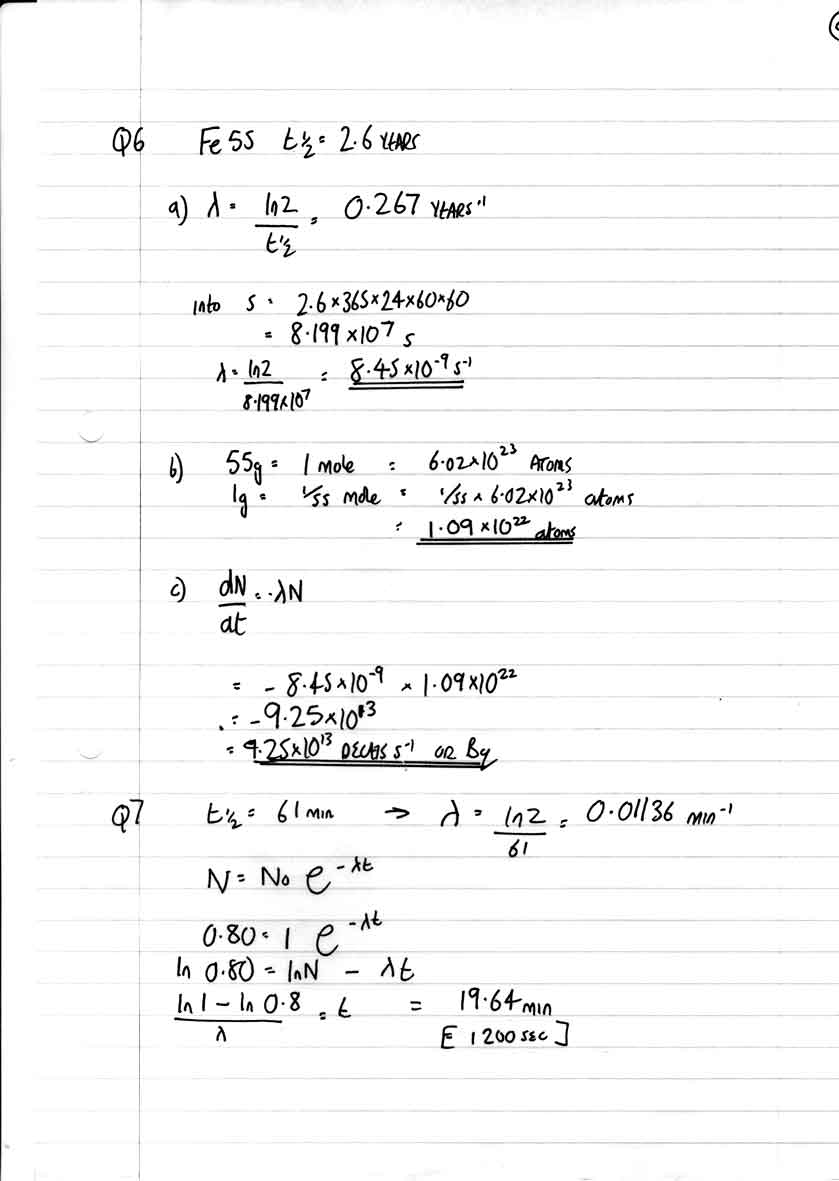 Q6 Fe 55 t½ = 2.6 YEARS
a) λ = ln2 / t½ = 0.267 YEARS⁻¹
into s = 2.6 × 365 × 24 × 60 × 60
= 8.199 × 10⁷ s
λ = ln2 / 8.199 × 10⁷ = 8.45 × 10⁻⁹ s⁻¹
b) 55g = 1 mole = 6.02 × 10²³ ATOMS
1g = 1/55 mole = 1/55 × 6.02 × 10²³ atoms
= 1.09 × 10²² atoms
c) dN / dt = -λN
= - 8.45 × 10⁻⁹ × 1.09 × 10²²
= - 9.25 × 10¹³
= 9.25 × 10¹³ DECAYS s⁻¹ OR Bq
Q7 t½ = 61 min → λ = ln2 / 61 = 0.01136 min⁻¹
N = N₀ e^-λt
0.80 = 1 e^-λt
ln 0.80 = lnN - λt
ln 1 - ln 0.8 / λ = t = 19.64 min
[= 1200 sec]